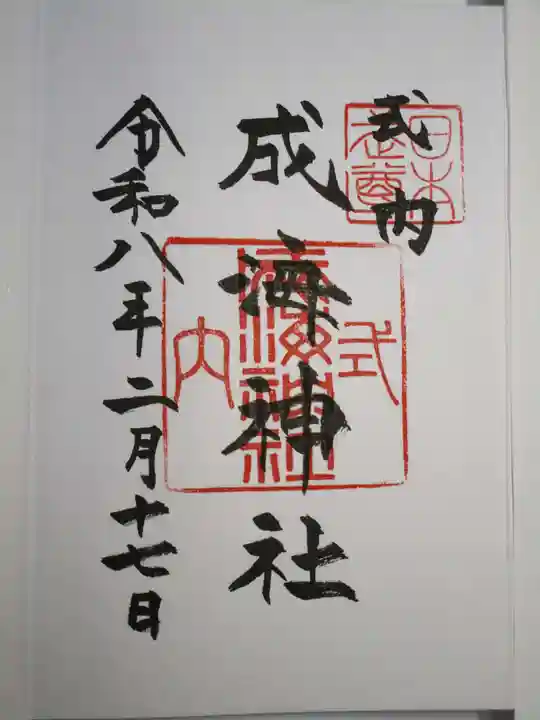 式内
日本
武尊
成海神社
式
内
令和八年二月十七日